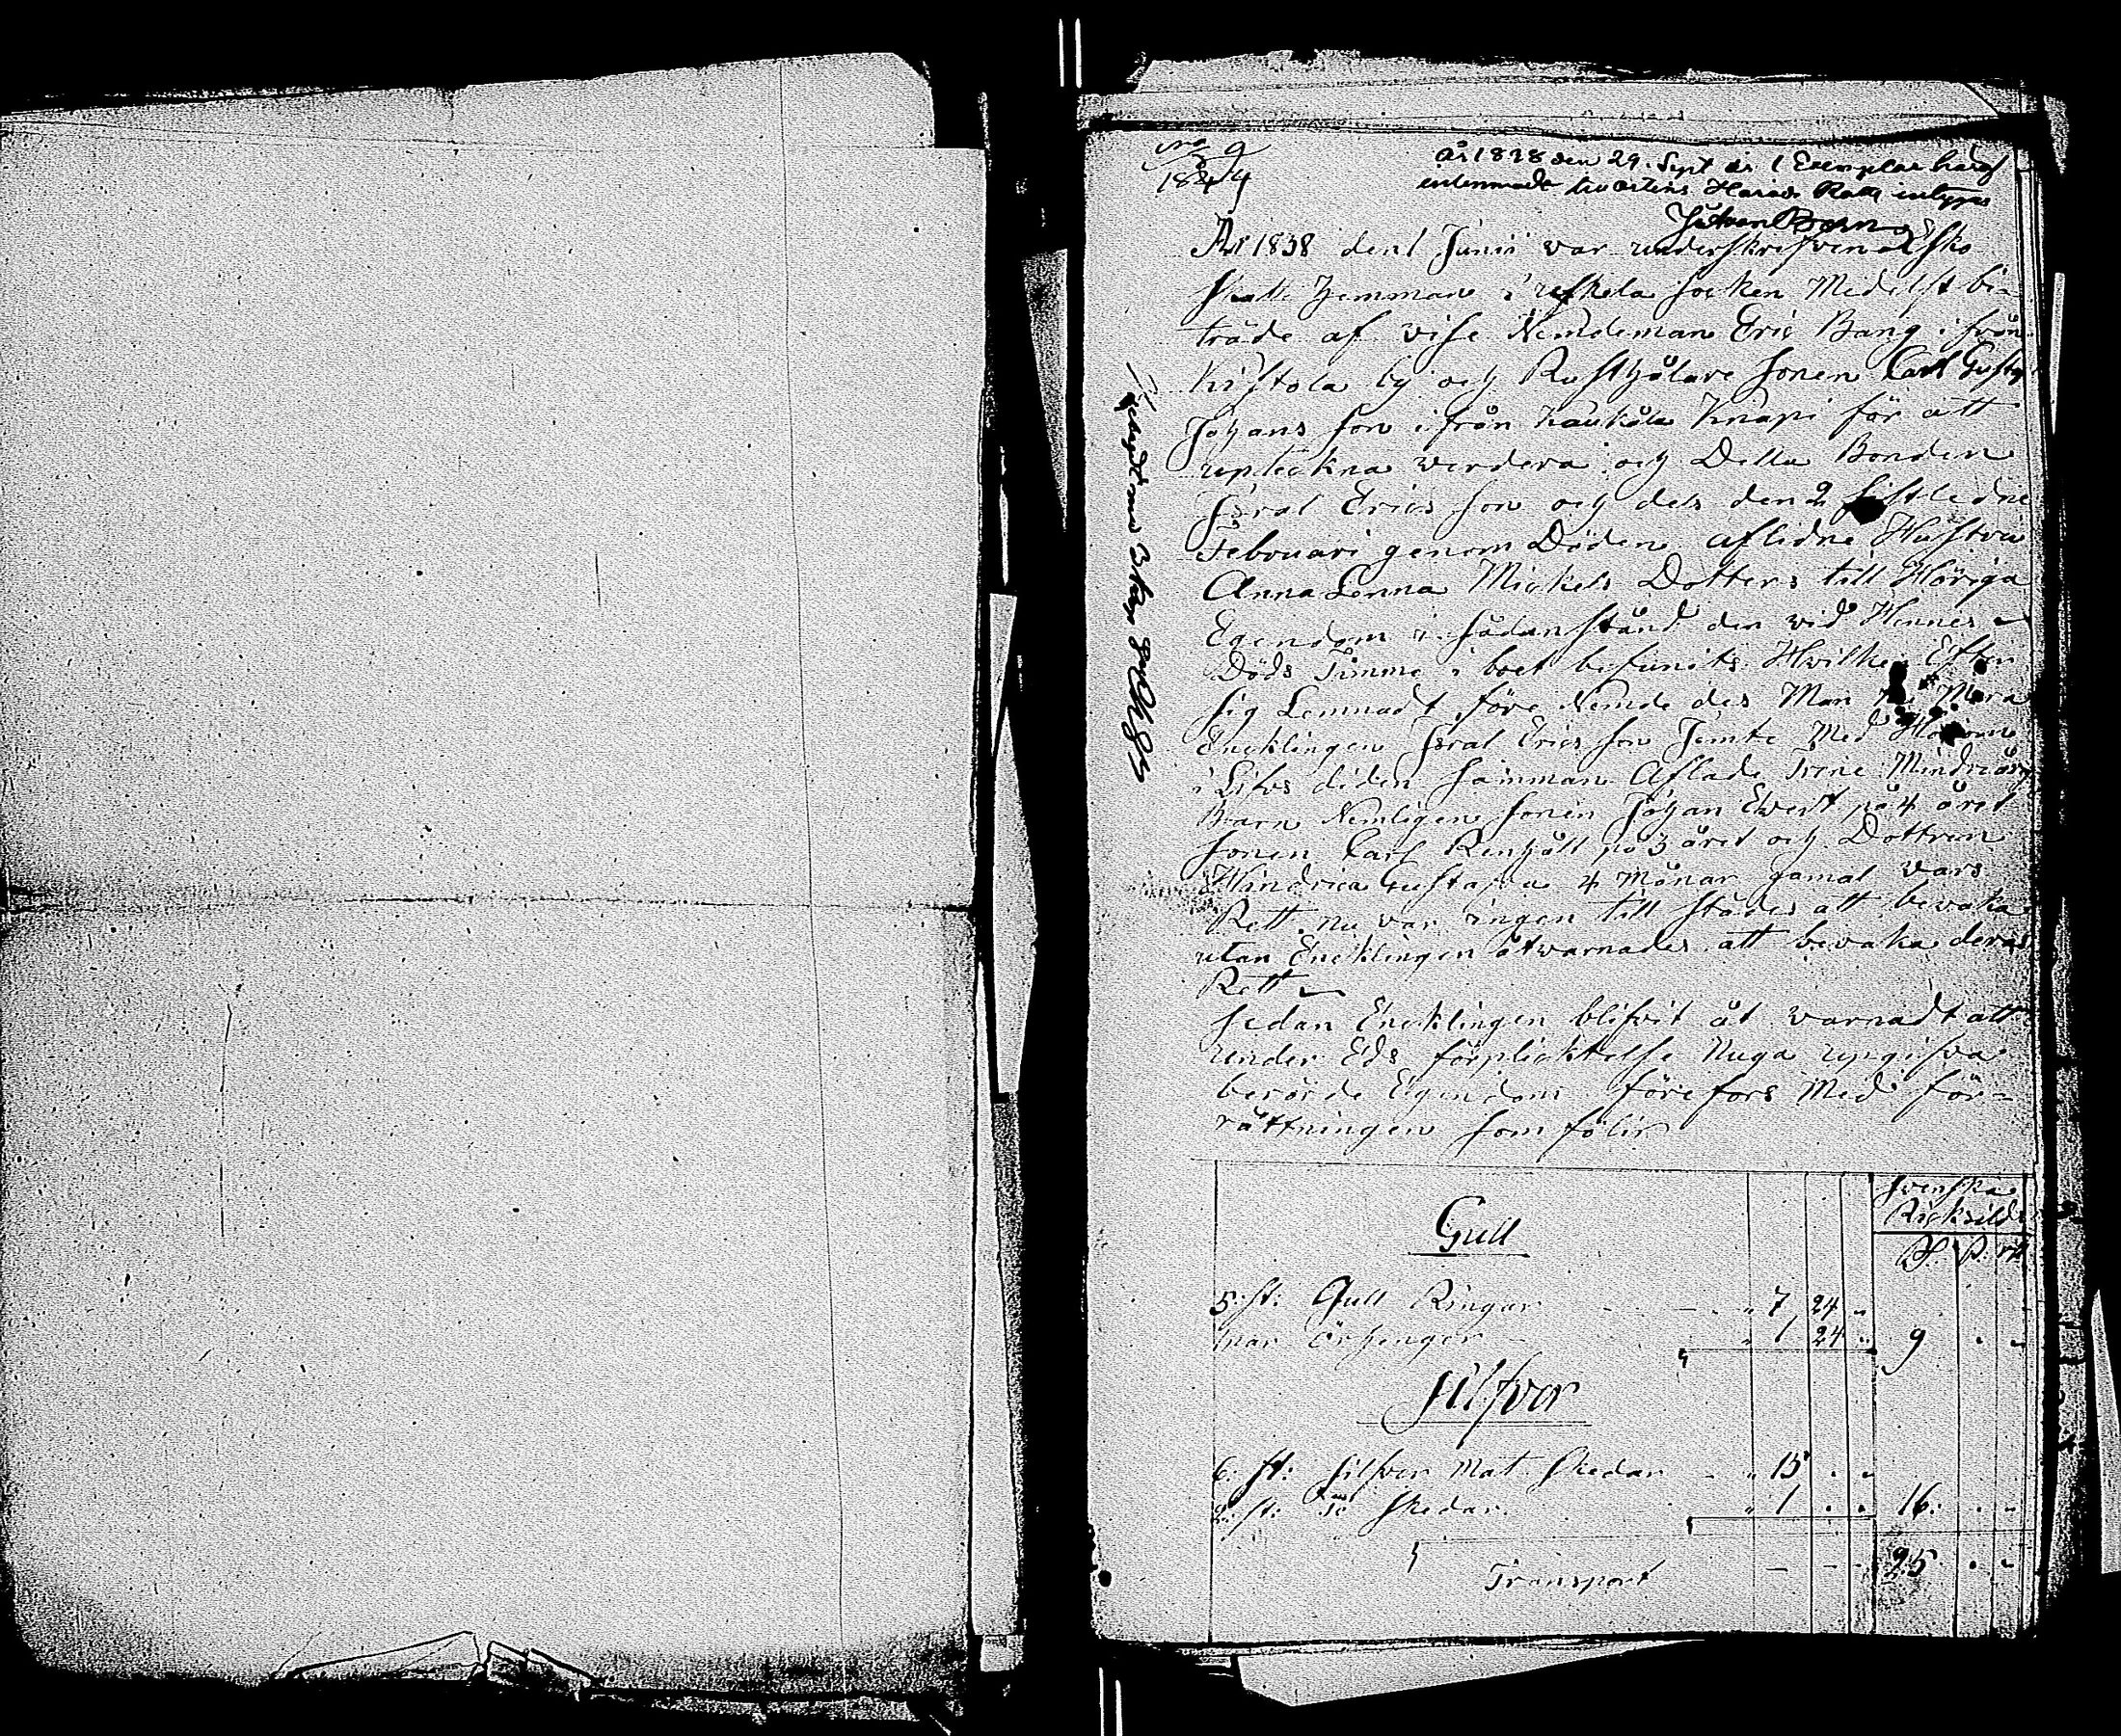 År 1838 den 29. Sept är 1 Exemplar häraf
inlemnadt Häradsrätt intygar
År 1838 den 1 Junii var underskrifven å
skatte Hemman i Uskela socken Medelst bi-
träde af vise Nemdeman Eric Bang ifrån
Kistola by och Rusthålare sonen Carl Gustaf
Johans son ifrån Kaukola Knapi för att
uptekna verdera och Della Bonden
Isral Erics son och des den 2 sistledne
Februari genom Döden aflidne Hustru
Anna Lenna Mickels Dotters till Höriga
Egendom i sådan stånd den vid Hennes
Döds Timme i boet befunits Hvilken Efter
sig Lemnadt före Nemde des Man
Encklingen Isral Erics son Jemte Med Honom
i Lifvs tiden samman Aflade Trene Mindreårg
Barn Nemligen sonen Johan Evert på 4 året
sonen Carl Renhålt på 3 året och Dottren
Hindrica Gustafva 4 Månar gamal vars
Rett nu var ingen till städes att bevaka
utan Encklingen åtvarnades att bevaka deras
Rett
sedan Encklingen blifvit åt varnadt att
under Eds förplicktelse Nuga upgifva
berörde Egendom förefors Med för=
rättningen som fölir
Svenska
Ricksild:
Gull
5: st: Gull Ringar - - " 7 24 "
1 par Örhenger - " 1 24 " 9 . "
Silfver
6: st: silfver Mat skedar - " 15 . "
2: st: Te skedar " 1 . " 16: . "
Transport - - 25 . "